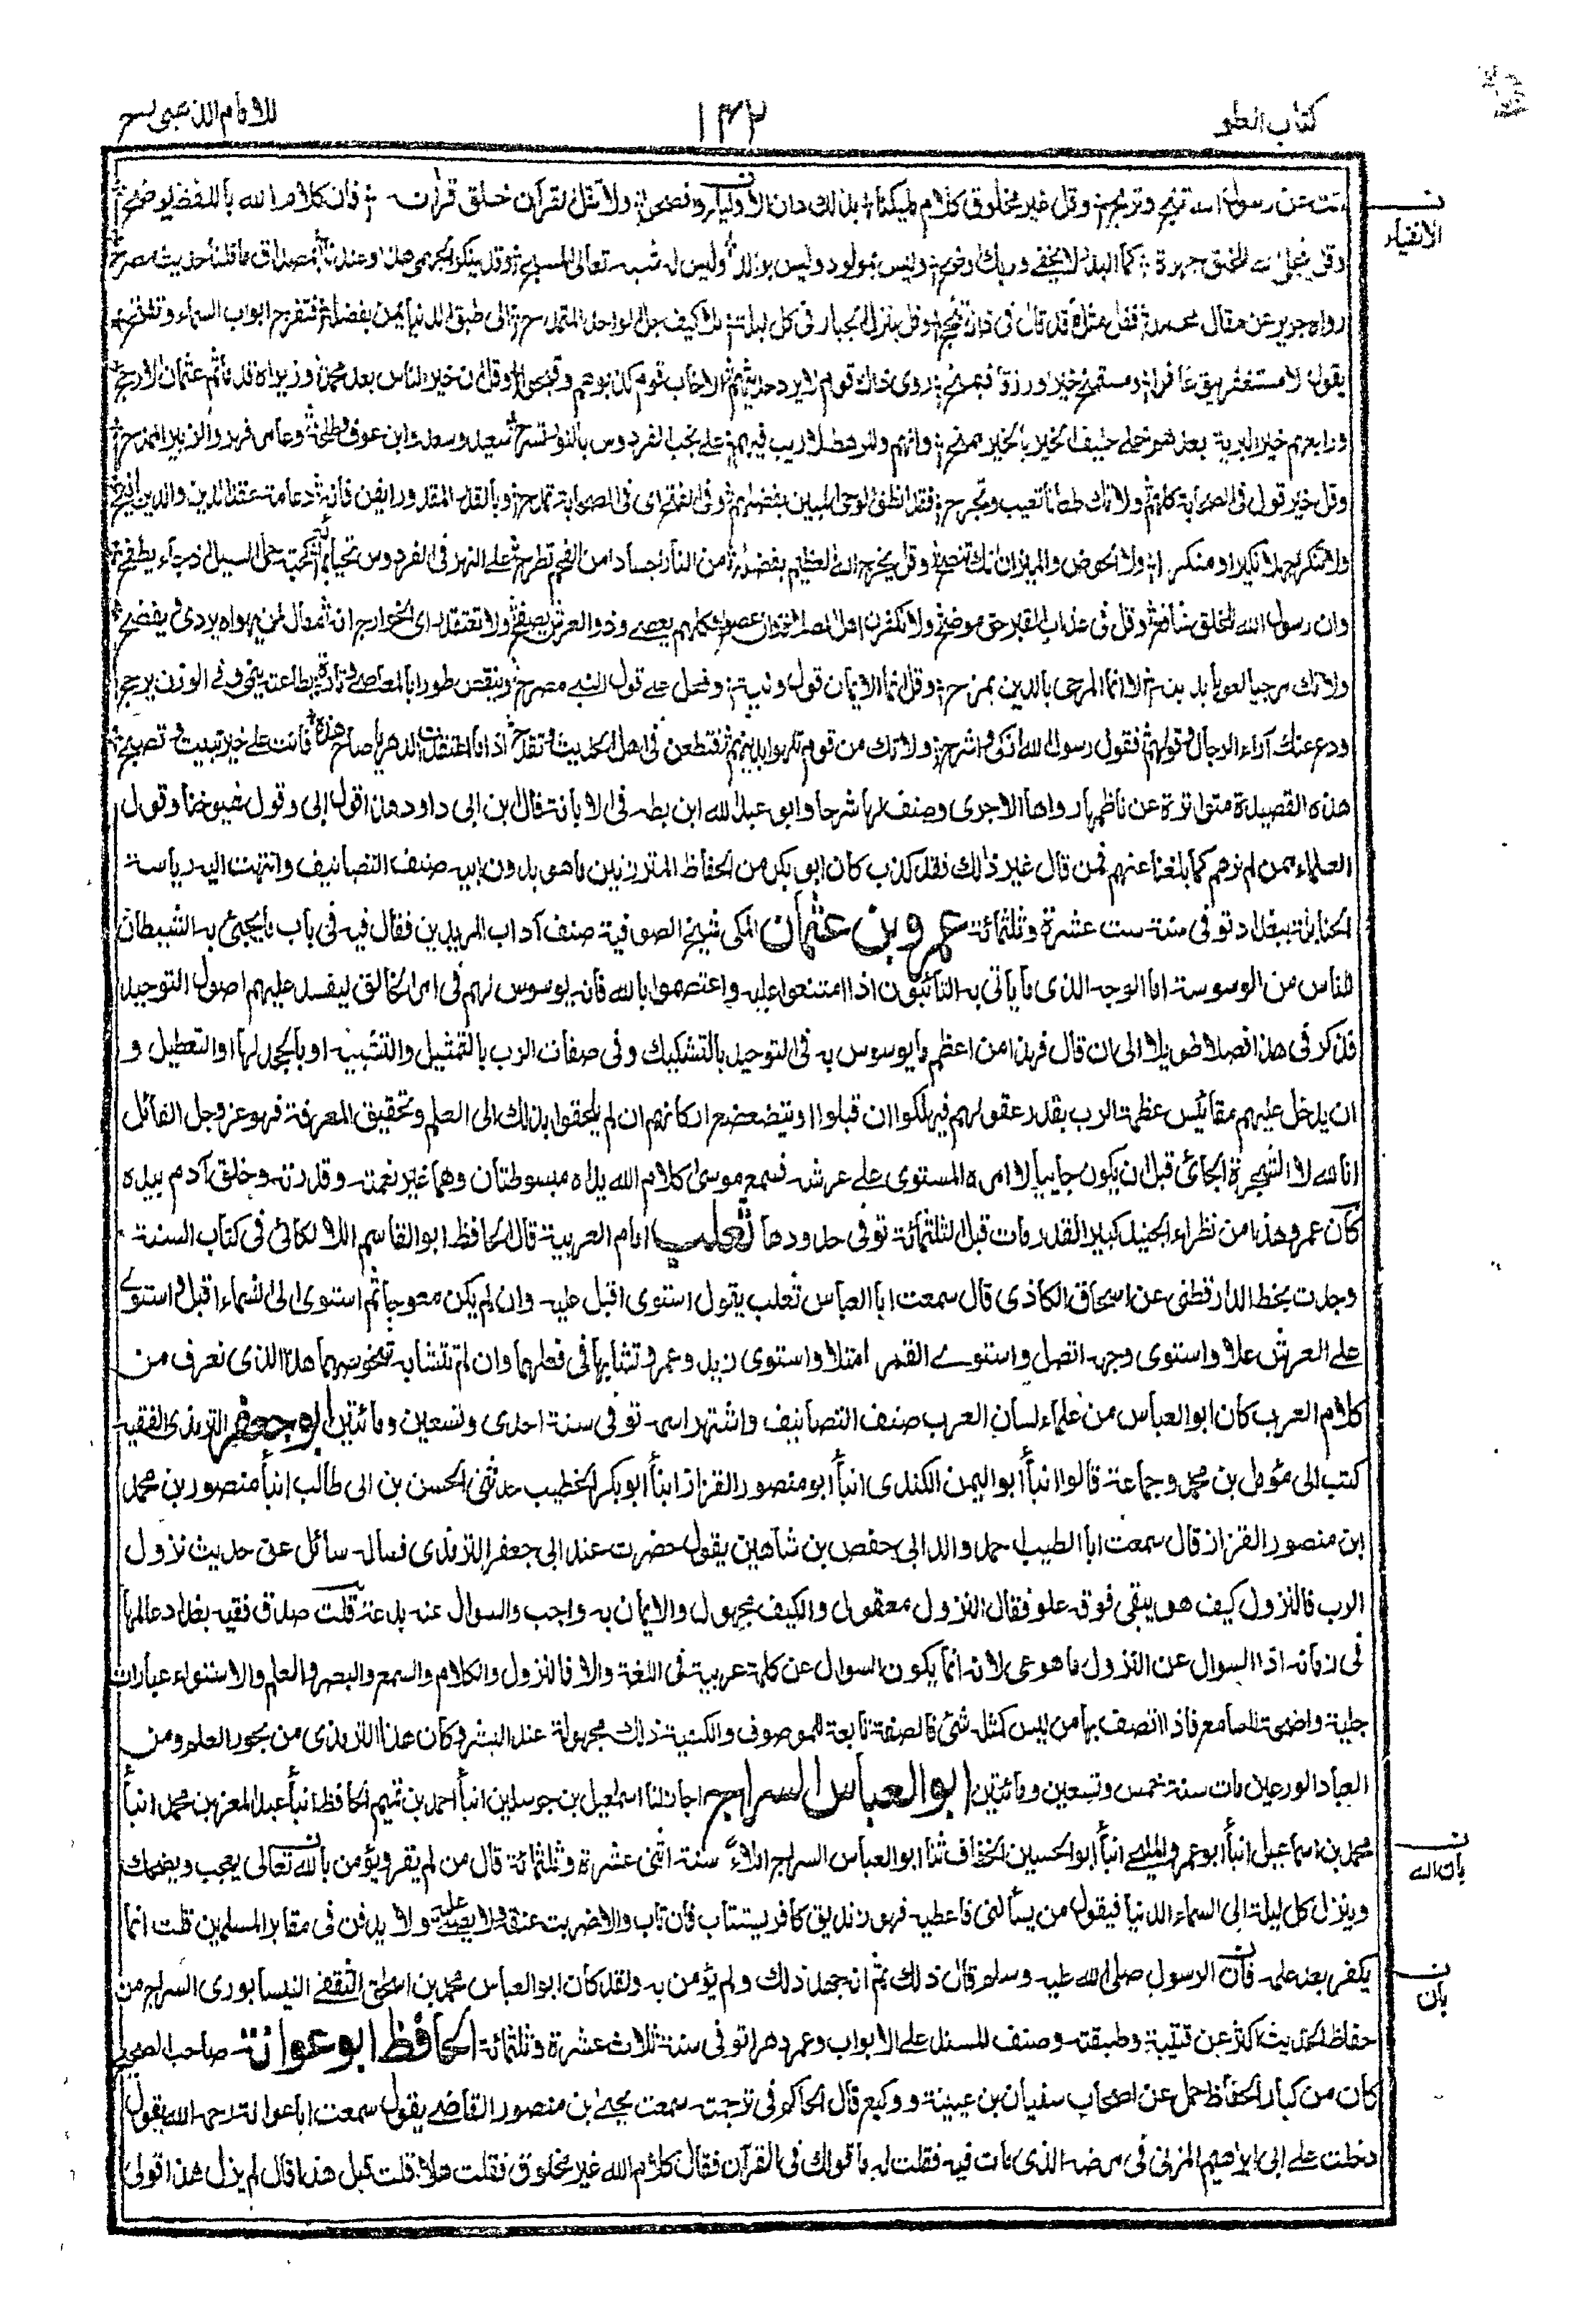 كتاب العلو
١٤٢
للامام الذهبى رح
أتت عن رسول الله تنج وتربح ؛ وقل غير مخلوق كلام مليكنا ؛ بذلك دان الاولياء وافصحوا ؛ ولا تقل القرآن خلق قرأت ؛ فان كلام الله باللفظ يوضح ؛
الاتقياء
وقل يتجلى الله للخلق جهرة ؛ كما البدر لا يخفى وربك اوضح ؛ وليس بمولود وليس بوالد ؛ وليس له شبه تعالى المسبح ؛ وقد ينكر الجهمى هذا وعندنا ؛ بمصداق ما قلنا حديث مصرح ؛
رواه جرير عن مقال محمد ؛ فقل مثل ما قد قال فى ذاك تنجح ؛ وقل ينزل الجبار فى كل ليلة ؛ بلا كيف جل الواحد المتمدح ؛ الى طبق الدنيا يمن بفضله ؛ فتفرج ابواب السماء وتفتح ؛
يقول الا مستغفر يلق غافرا ؛ ومستمنح خيرا ورزقا فيمنح ؛ روى ذاك قوم لا يرد حديثهم ؛ الا خاب قوم كذبوهم وقبحوا ؛ وقل ان خير الناس بعد محمد ؛ وزيراه قدما ثم عثمان الارجح ؛
ورابعهم خير البرية بعدهم ؛ على حليف الخير بالخير ممنح ؛ وانهم والرهط لا ريب فيهم ؛ على نجب الفردوس بالنور تسرح ؛ سعيد وسعد وابن عوف وطلحة ؛ وعامر فهر والزبير الممدح ؛
وقل خير قول فى الصحابة كلهم ؛ ولا تك طعانا تعيب وتجرح ؛ فقد نطق الوحى المبين بفضلهم ؛ وفى الفتح اى فى الصحابة تمدح ؛ وبالقدر المقدور ايقن فانه ؛ دعامة عقد الدين والدين افيح ؛
ولا تنكرن جهلا نكيرا ومنكرا ؛ ولا الحوض والميزان انك تنصح ؛ وقل يخرج الله العظيم بفضله ؛ من النار اجسادا من الفحم تطرح ؛ على النهر فى الفردوس تحيا بمائه ؛ كحبة حمل السيل اذ جاء يطفح ؛
وان رسول الله للخلق شافع ؛ وقل فى عذاب القبر حق موضح ؛ ولا تكفرن اهل الصلاة وان عصوا ؛ فكلهم يعصى وذو العرش يصفح ؛ ولا تعتقد راى الخوارج انه ؛ مقال لمن يهواه يردى ويفضح ؛
ولا تك مرجيا لعوبا بدينه ؛ الا انما المرجى بالدين يمزح ؛ وقل انما الايمان قول ونية ؛ وفعل على قول النبى مصرح ؛ وينقص طورا بالمعاصى وتارة ؛ بطاعته ينمى وفى الوزن يرجح ؛
ودع عنك آراء الرجال وقولهم ؛ فقول رسول الله ازكى واشرح ؛ ولا تك من قوم تلهوا بدينهم ؛ فتطعن فى اهل الحديث وتقدح ؛ اذا ما اعتقدت الدهر يا صاح هذه ؛ فانت على خير تبيت وتصبح ؛
هذه القصيدة متواترة عن ناظمها رواها الاجرى وصنف لها شرحا وابو عبد الله ابن بطه فى الابانة قال ابن ابى داود هذا قولى وقول ابى وقول شيوخنا وقول
العلماء ممن لم نرهم كما بلغنا عنهم فمن قال غير ذلك فقد كذب كان ابو بكر من الحفاظ المتبرزين ما هو بدون ابيه صنف التصانيف وانتهت اليه رياسة
الحنابلة ببغداد توفى سنة ست عشرة وثلثمائة عمرو بن عثمان المكى شيخ الصوفية صنف آداب المريدين فقال فيه فى باب ما يجيئ به الشيطان
للناس من الوسوسة اما الوجه الذى ما ياتى به التائبون اذا امتنعوا عليه واعتصموا بالله فانه يوسوس لهم فى امر الخالق ليفسد عليهم اصول التوحيد
فذكر فى هذا فصلا طويلا الى ان قال فهذا من اعظم ما يوسوس به فى التوحيد بالتشكيك وفى صفات الرب بالتمثيل والتشبيه او بالجحد لها او التعطيل و
ان يدخل عليهم مقائيس عظمة الرب بقدر عقولهم فيهلكوا ان قبلوا او يتضعضع اركانهم ان لم يلجقوا بذلك الى العلم وتحقيق المعرفة فهو عز وجل القائل
انا لله لا الشجرة الجائى قبل ان يكون جاييا لا امره المستوى على عرشه فسمع موسى كلام الله يداه مبسوطتان وهما غير نعمته وقدرته وخلق آدم بيده
كان عمرو هذا من نظراء الجنيد كبير القدر مات قبل الثلثمائة توفى حدودها ثعلب امام العربية قال الحافظ ابو القاسم اللالكائى فى كتاب السنة
وجدت بخط الدارقطنى عن اسحاق الكاذى قال سمعت ابا العباس ثعلب يقول استوى اقبل عليه وان لم يكن معوجا ثم استوى الى السماء اقبل واستوى
على العرش علا واستوى وجهه اتصل واستوى القمر امتلا واستوى زيد وعمرو تشابها فى فعلهما وان لم تتشابه شخوصهما هذا الذى نعرف من
كلام العرب كان ابو العباس من علماء لسان العرب صنف التصانيف واشتهر اسمه توفى سنة احدى وتسعين ومائتين ابو جعفر الترمذى الفقيه
كتب الى مؤمل بن محمد وجماعة قالوا انبأ ابو اليمن الكندى انبأ ابو منصور القزاز انبأ ابو بكر الخطيب حدثنى الحسن بن ابى طالب انبأ منصور بن محمد
ابن منصور القزاز قال سمعت ابا الطيب احمد والد ابى حفص بن شاهين يقول حضرت عند ابى جعفر الترمذى فساله سائل عن حديث نزول
الرب فالنزول كيف هو يبقى فوقه علو فقال النزول معقول والكيف مجهول والايمان به واجب والسوال عنه بدعة قلت صدق فقيه بغداد عالمها
فى زمانه اذ السوال عن النزول ما هو عى لانه انما يكون السوال عن كلمة عربية فى اللغة والا فالنزول والكلام والسمع والبصر والعلم والاستواء عبارات
جلية واضحة للسامع فاذا اتصف بها من ليس كمثله شئ فالصفة تابعة للموصوف والكيفية ذلك مجهولة عند البشر وكان هذا الترمذى من بحور العلم ومن
العباد الورعين مات سنة خمس وتسعين ومائتين ابو العباس السراج اجاز لنا اسمعيل بن جوسلين انبأ احمد بن تميم الحافظ انبأ عبد المعز بن محمد انبأ
محمد بن اسماعيل انبأ ابو عمرو المليحى انبأ ابو الحسين الخفاف ثنا ابو العباس السراج املاءً سنة اثنى عشرة وثلثمائة قال من لم يقر ويؤمن بالله تعالى يعجب ويضحك
بان الله
وينزل كل ليلة الى السماء الدنيا فيقول من يسألنى فاعطيه فهو زنديق كافر يستتاب فان تاب والا ضربت عنقه ولا يصلى عليه ولا يدفن فى مقابر المسلمين قلت انما
يكفر بعد علمه فان الرسول صلى الله عليه وسلم قال ذلك ثم انه جحد ذلك ولم يؤمن به ولقد كان ابو العباس محمد بن اسحق الثقفى النيسابورى السراج من
بان
حفاظ الحديث اكثر عن قتيبة وطبقته وصنف المسند على الابواب وعمر دهرا توفى سنة ثلاث عشرة وثلثمائة الحافظ ابو عوانة صاحب الصحيح
كان من كبار الحفاظ حمل عن اصحاب سفيان بن عيينة ووكيع قال الحاكم فى ترجمته سمعت يحيى بن منصور القاضى يقول سمعت ابا عوانة رحمه الله يقول
دخلت على ابى ابراهيم المزنى فى مرضه الذى مات فيه فقلت له ما قولك فى القرآن فقال كلام الله غير مخلوق فقلت هلا قلت قبل هذا قال لم يزل هذا قولى